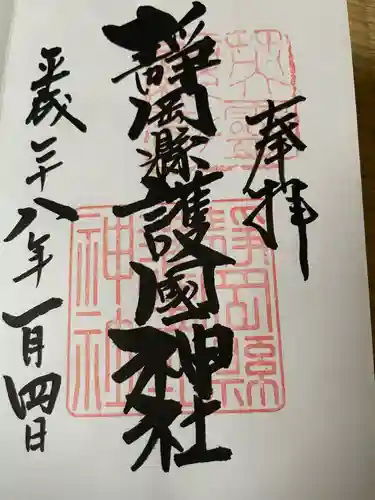 奉拝
靜岡縣護國神社
平成二十八年一月四日
靜岡縣護國神社